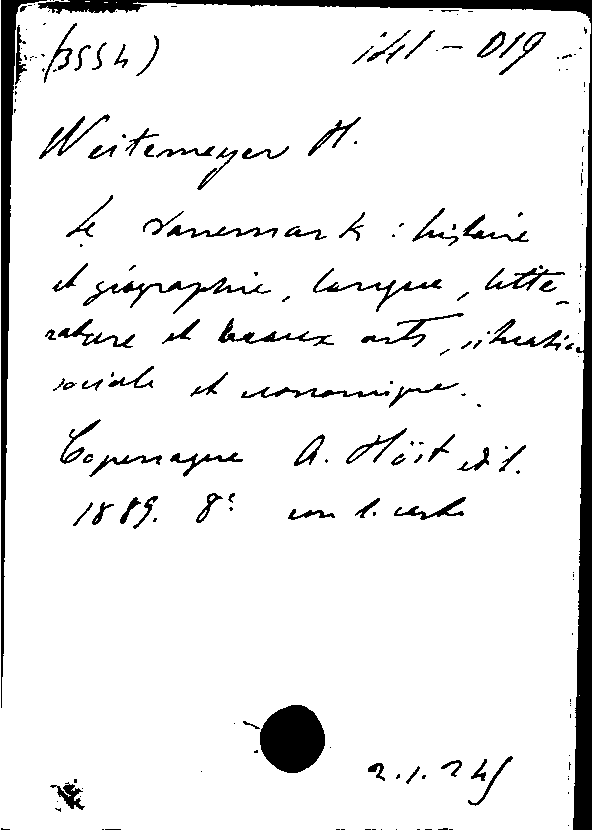 (3554)
Weitemeyer H.
Le Danemark : histoire
et géographie, langue, litté-
rature et beaux arts, situation
sociale et economique.
Copenague A. Höst edit.
1889. 8º con 1. carta
2.1.245